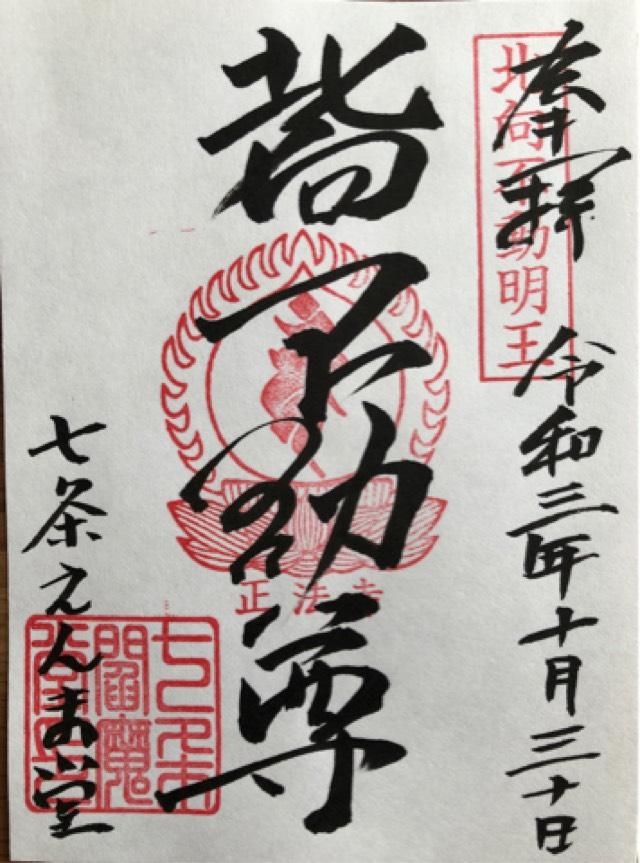 奉拝
北向不動明王
令和三年十月三十日
北向不動尊
正法寺
七条えんま堂
七条
閻魔